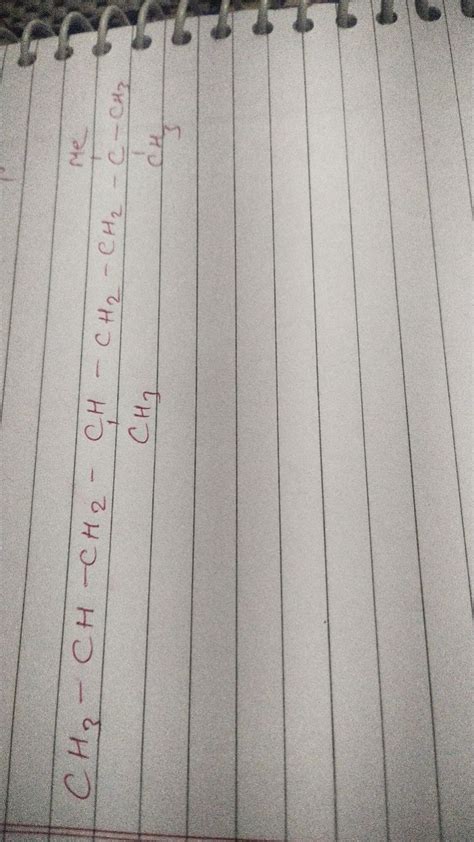 Me
CH3 - CH - CH2 - CH - CH2 - CH2 - C - CH3
CH3 CH3